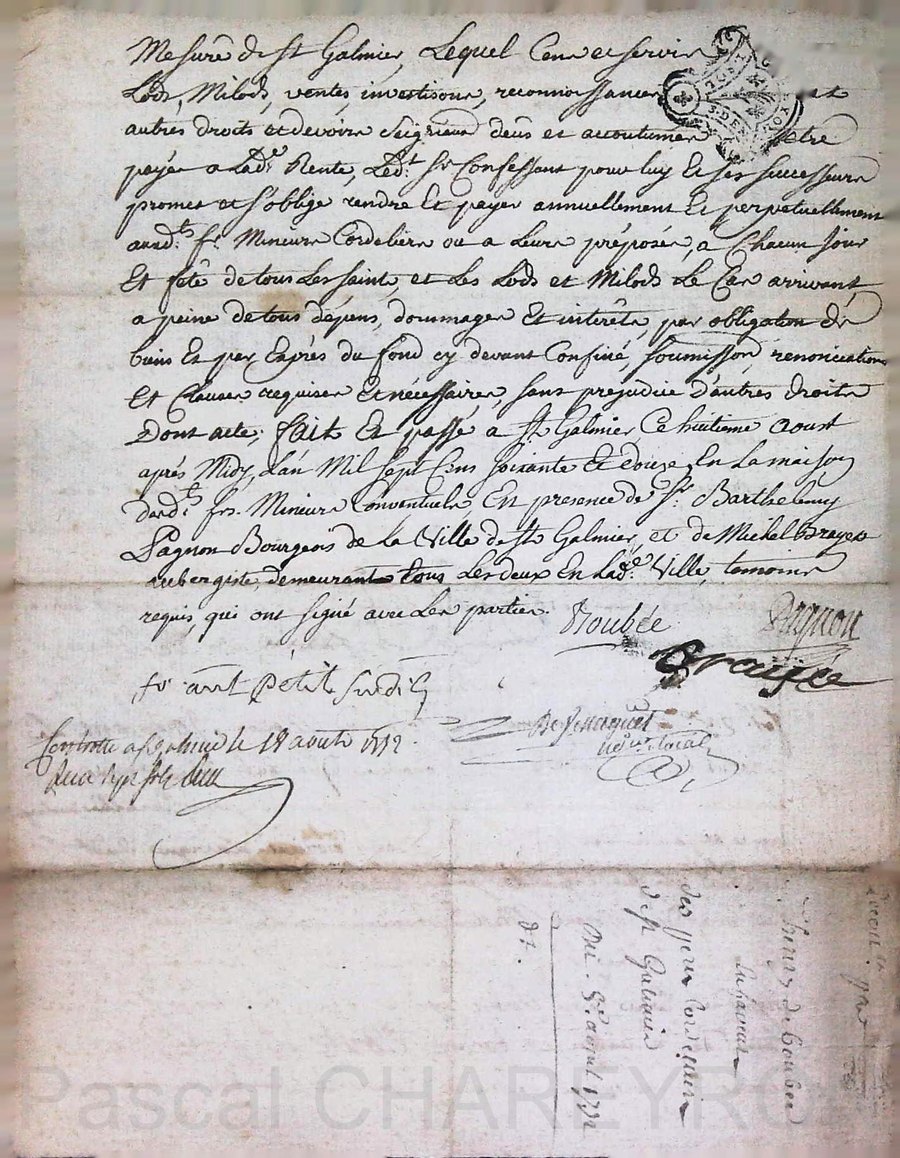 Mesure de St Galmier, Lequel Cens et servis
Lods, Milods, ventes investisons, reconnoissances et
autres droits et devoirs Seigneuriaux deus et accoutumés etre
payés a Lade Rente, Ledt Sr Confessant pour luy Et ses successeurs
promet et s'oblige rendre Et payer annuellement Et perpetuellement
auxds frs Mineurs Cordeliers ou a Leurs préposés, a Chacun Jour
Et fête de tous Les saints, et Les Lods et Milods Le Cas arrivant
a peine de tous dépens, dommages Et intérêts, par obligation de
biens Et par Exprès du fond cy devant Confiné, soumission, renonciations
Et Clauses requises Et nécessaires, sans prejudice d'autres droits
Dont acte; fait Et passé a St Galmier, Ce huitieme Aoust
après Midy, L'an Mil Sept Cens soixante Et douze, En La maison
desds frs Mineurs Conventuels, En presence de Sr Barthelemy
Pagnon Bourgeois de La Ville de St Galmier, et de Michel Brayes
aubergiste, demeurant tous Les deux En Lade Ville, temoins
requis, qui ont signé avec Les parties.
Roubée Pagnon
fr ant petit
Controllé a St galmier le 18 aoust 1772
notaire
de Coubée
des freres Cordeliers
de St Galmier
Du 8e aoust 1772
Pascal CHAREYRON